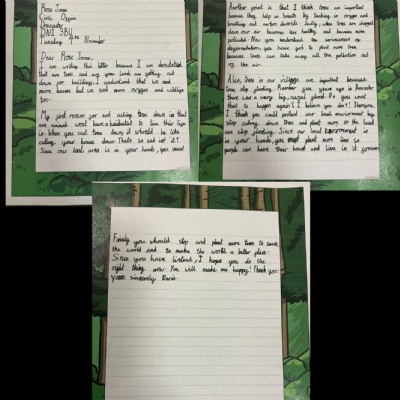 Ross Jones
Civic Office
Doncaster
DN1 3BU
Tuesday November
Dear Ross Jones,
I am writing this letter because I am devistated
that are trees and are your lands are getting cut
down for buildings. I understand that we need
more houses but we need more oxygen and wildlife
too.
My first reason for not cutting trees down is that
are animals wont have a habitat to live their life
in. When you cut trees down it whould be like
cutting your house down. Thats so sad isn't it?
Since our local area is in your hands, you must
Another point is that I think trees are important
because they help us breath by boching in oxygen and
breathing out carbon dioxide. Sadly, when trees are chopped
down our air becomes less healthy and become more
polluted. Now you understand the seriousness of
degeneration, you have got to plant more trees
because trees can take away all the pollution out
of the air.
Also, trees in our village are important because
trees stop flooding. Remember five years ago in Doncaster
there was a very big, sucful flood. Do you want
that to happen again? I believe you don't! Therefore,
I think you could protect our local environment by
stop cutting down trees and plant more so the local
can stop flooding. Since our local Environment is
in your hands, you must plant more trees so
people can have their home and live in it forever.
Finally you whould stop and plant more trees to save
the world and to make the world a better place.
Since you have listend, I hope you do the
right thing now. You will make me happy! Thank you.
yours sincerely Daria.